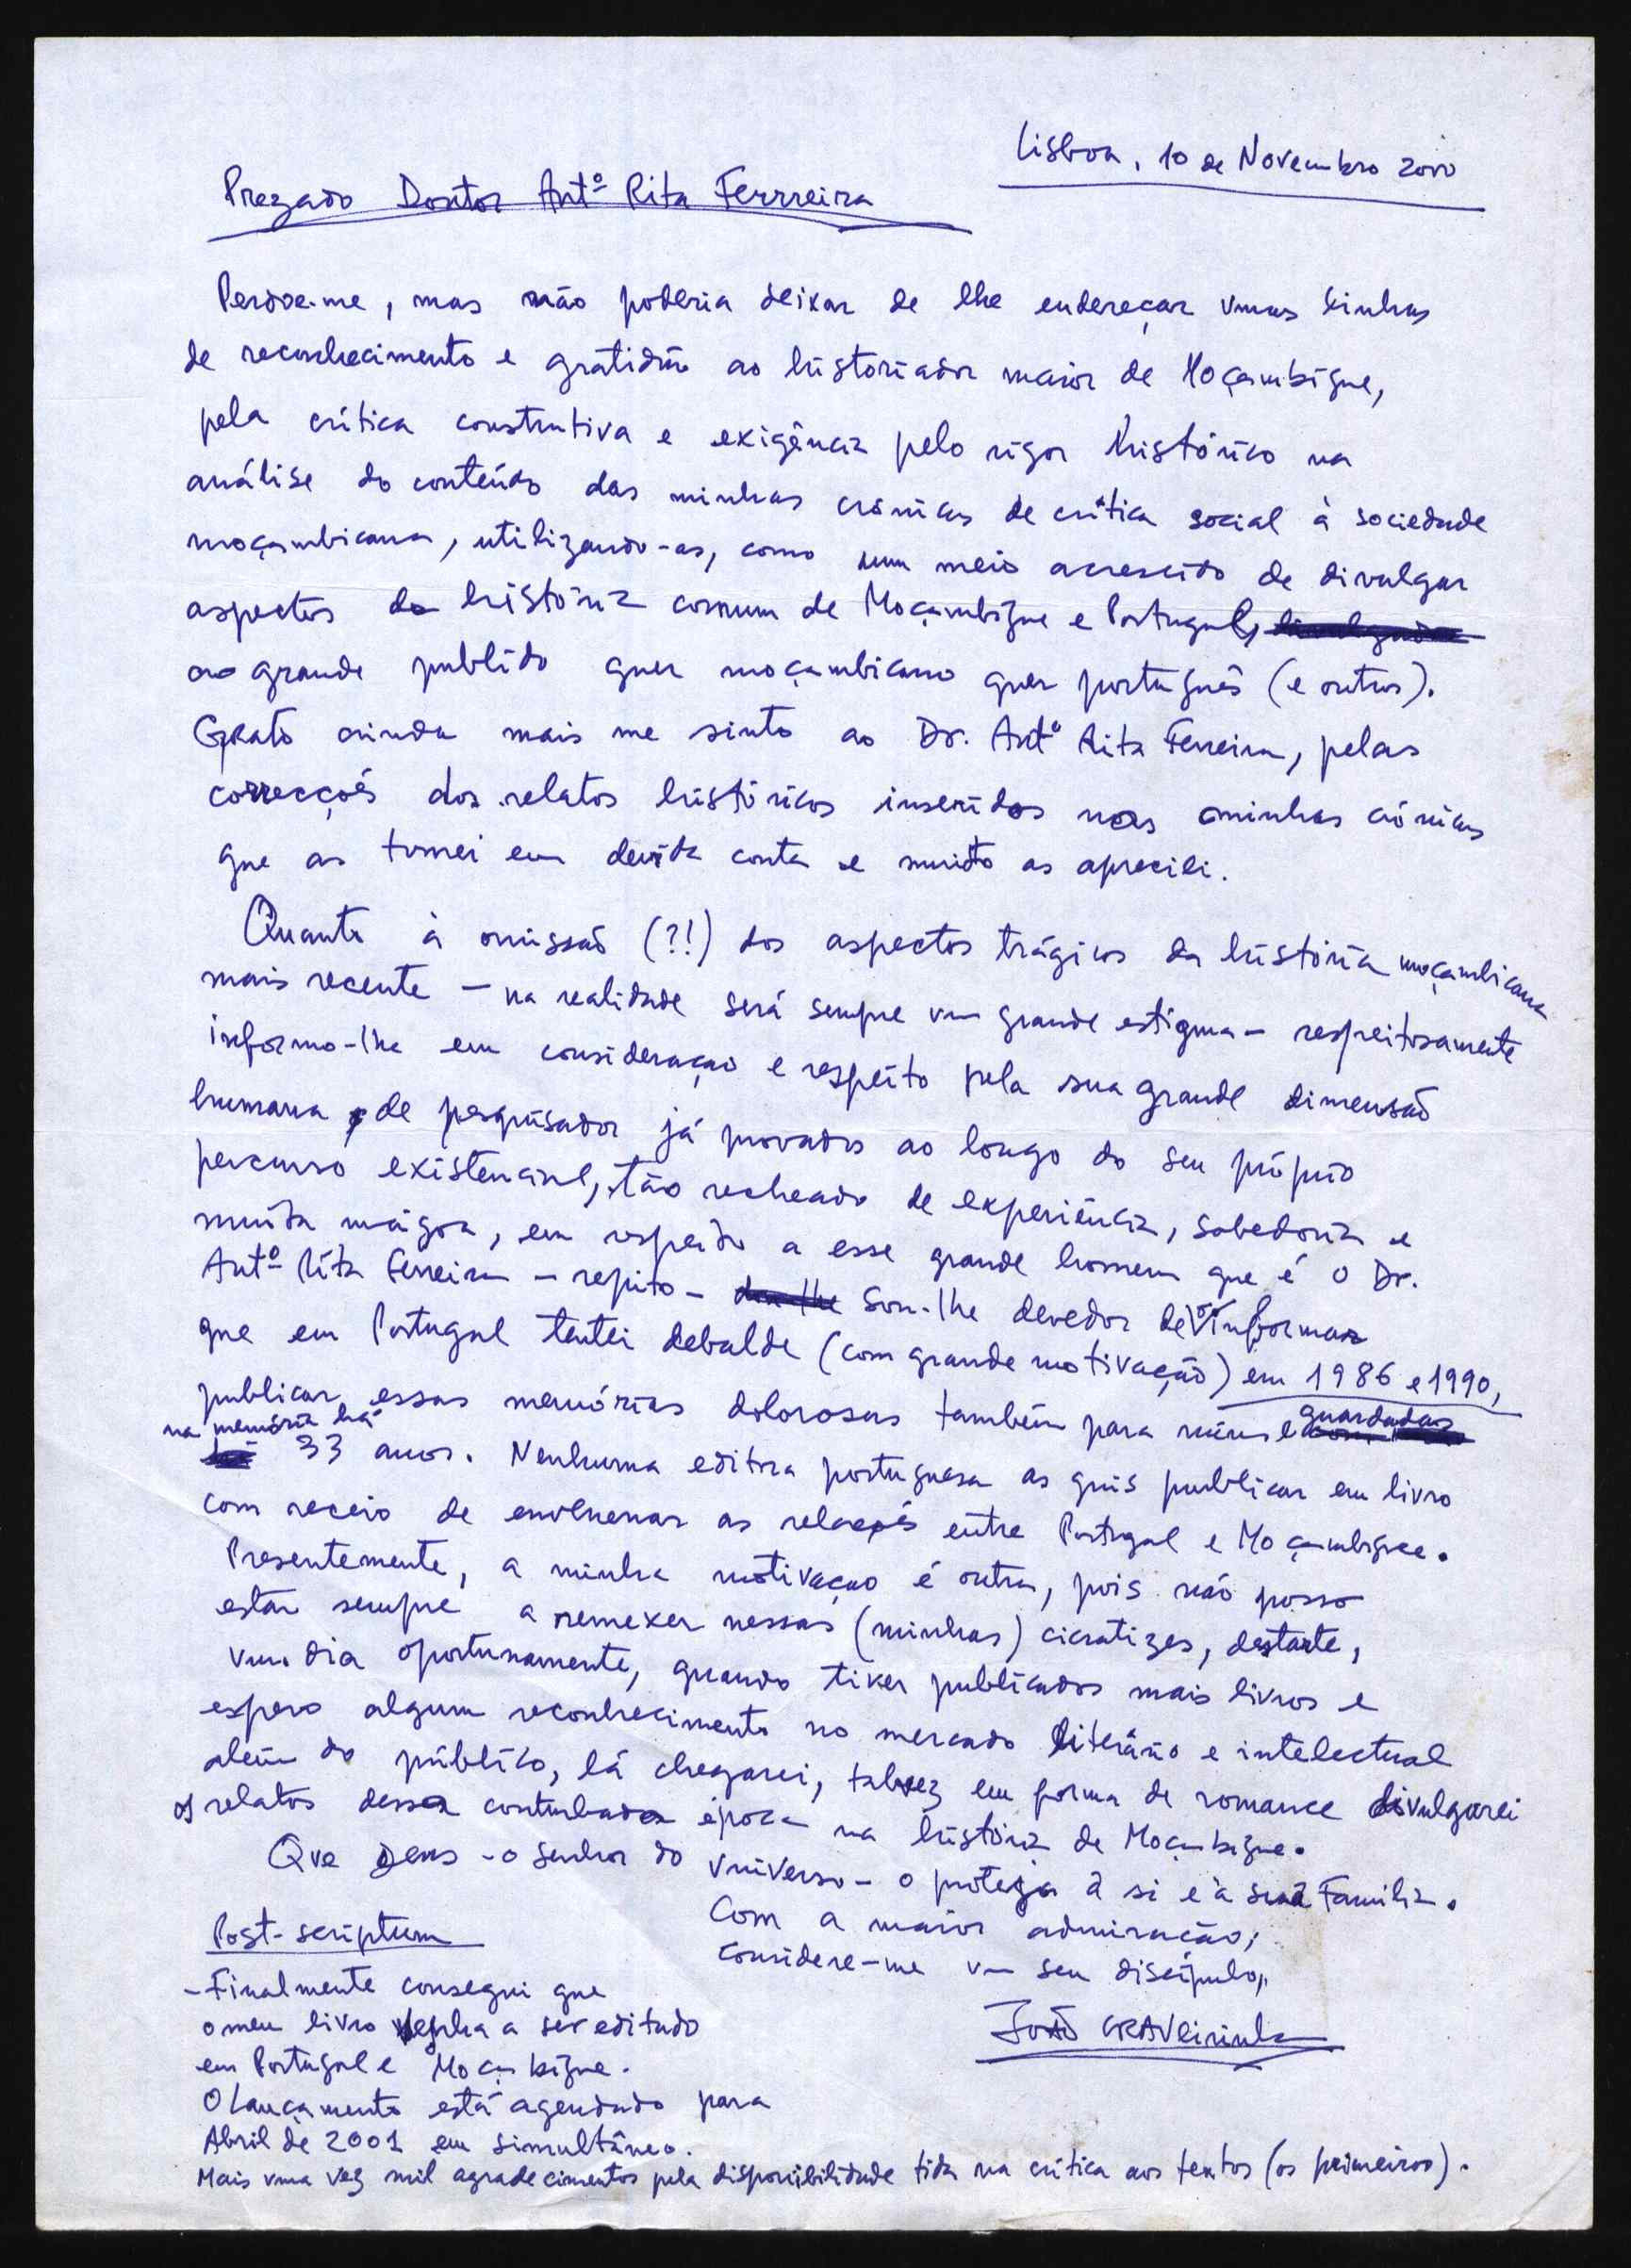 Lisboa, 10 de Novembro 2000
Prezado Doutor Antº Rita Ferrreira
Perdoe-me, mas não poderia deixar de lhe endereçar umas linhas
de reconhecimento e gratidão ao historiador maior de Moçambique,
pela crítica construtiva e exigência pelo rigor histórico na
análise do conteúdo das minhas crónicas de crítica social à sociedade
moçambicana, utilizando-as, como um meio acrescido de divulgar
aspectos da história comum de Moçambique e Portugal,
ao grande publido quer moçambicano quer português (e outros).
Grato ainda mais me sinto ao Dr. Antº Rita Ferreira, pelas
correcções dos relatos históricos inseridos nas minhas crónicas
que as tomei em devida conta e muito as apreciei.
Quanto à omissão (?!) dos aspectos trágicos da história moçambicana
mais recente - na realidade será sempre um grande estigma - respeitosamente
informo-lhe em consideração e respeito pela sua grande dimensão
humana e de pesquisador já provados ao longo do seu próprio
percurso existencial, tão recheado de experiência, sabedoria e
muita mágoa, em respeito a esse grande homem que é o Dr.
Antº Rita Ferreira - repito - dou-lhe sou-lhe devedor de o informar
que em Portugal tentei debalde (com grande motivação) em 1986 e 1990,
publicar essas memórias dolorosas também para mim e guardadas
na memória há 33 anos. Nenhuma editora portuguesa as quis publicar em livro
com receio de envenenar as relações entre Portugal e Moçambique.
Presentemente, a minha motivação é outra, pois não posso
estar sempre a remexer nessas (minhas) cicratizes, destarte,
um dia oportunamente, quando tiver publicados mais livros e
espero algum reconhecimento no mercado literário e intelectual
além do público, lá chegarei, talvez em forma de romance divulgarei
os relatos dessa conturbada época na história de Moçambique.
Que Deus - o Senhor do Universo - o proteja a si e à sua Família.
Com a maior admiração;
considere-me um seu discípulo,
João CRAVeirinha
Post-scriptum
- Finalmente consegui que
o meu livro venha a ser editado
em Portugal e Moçambique.
O Lançamento está agendado para
Abril de 2001 em simultâneo.
Mais uma vez mil agradecimentos pela disponibilidade tida na crítica aos textos (os primeiros).